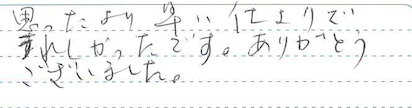 思ったより早い仕上りで
うれしかったです。ありがとう
ございました。